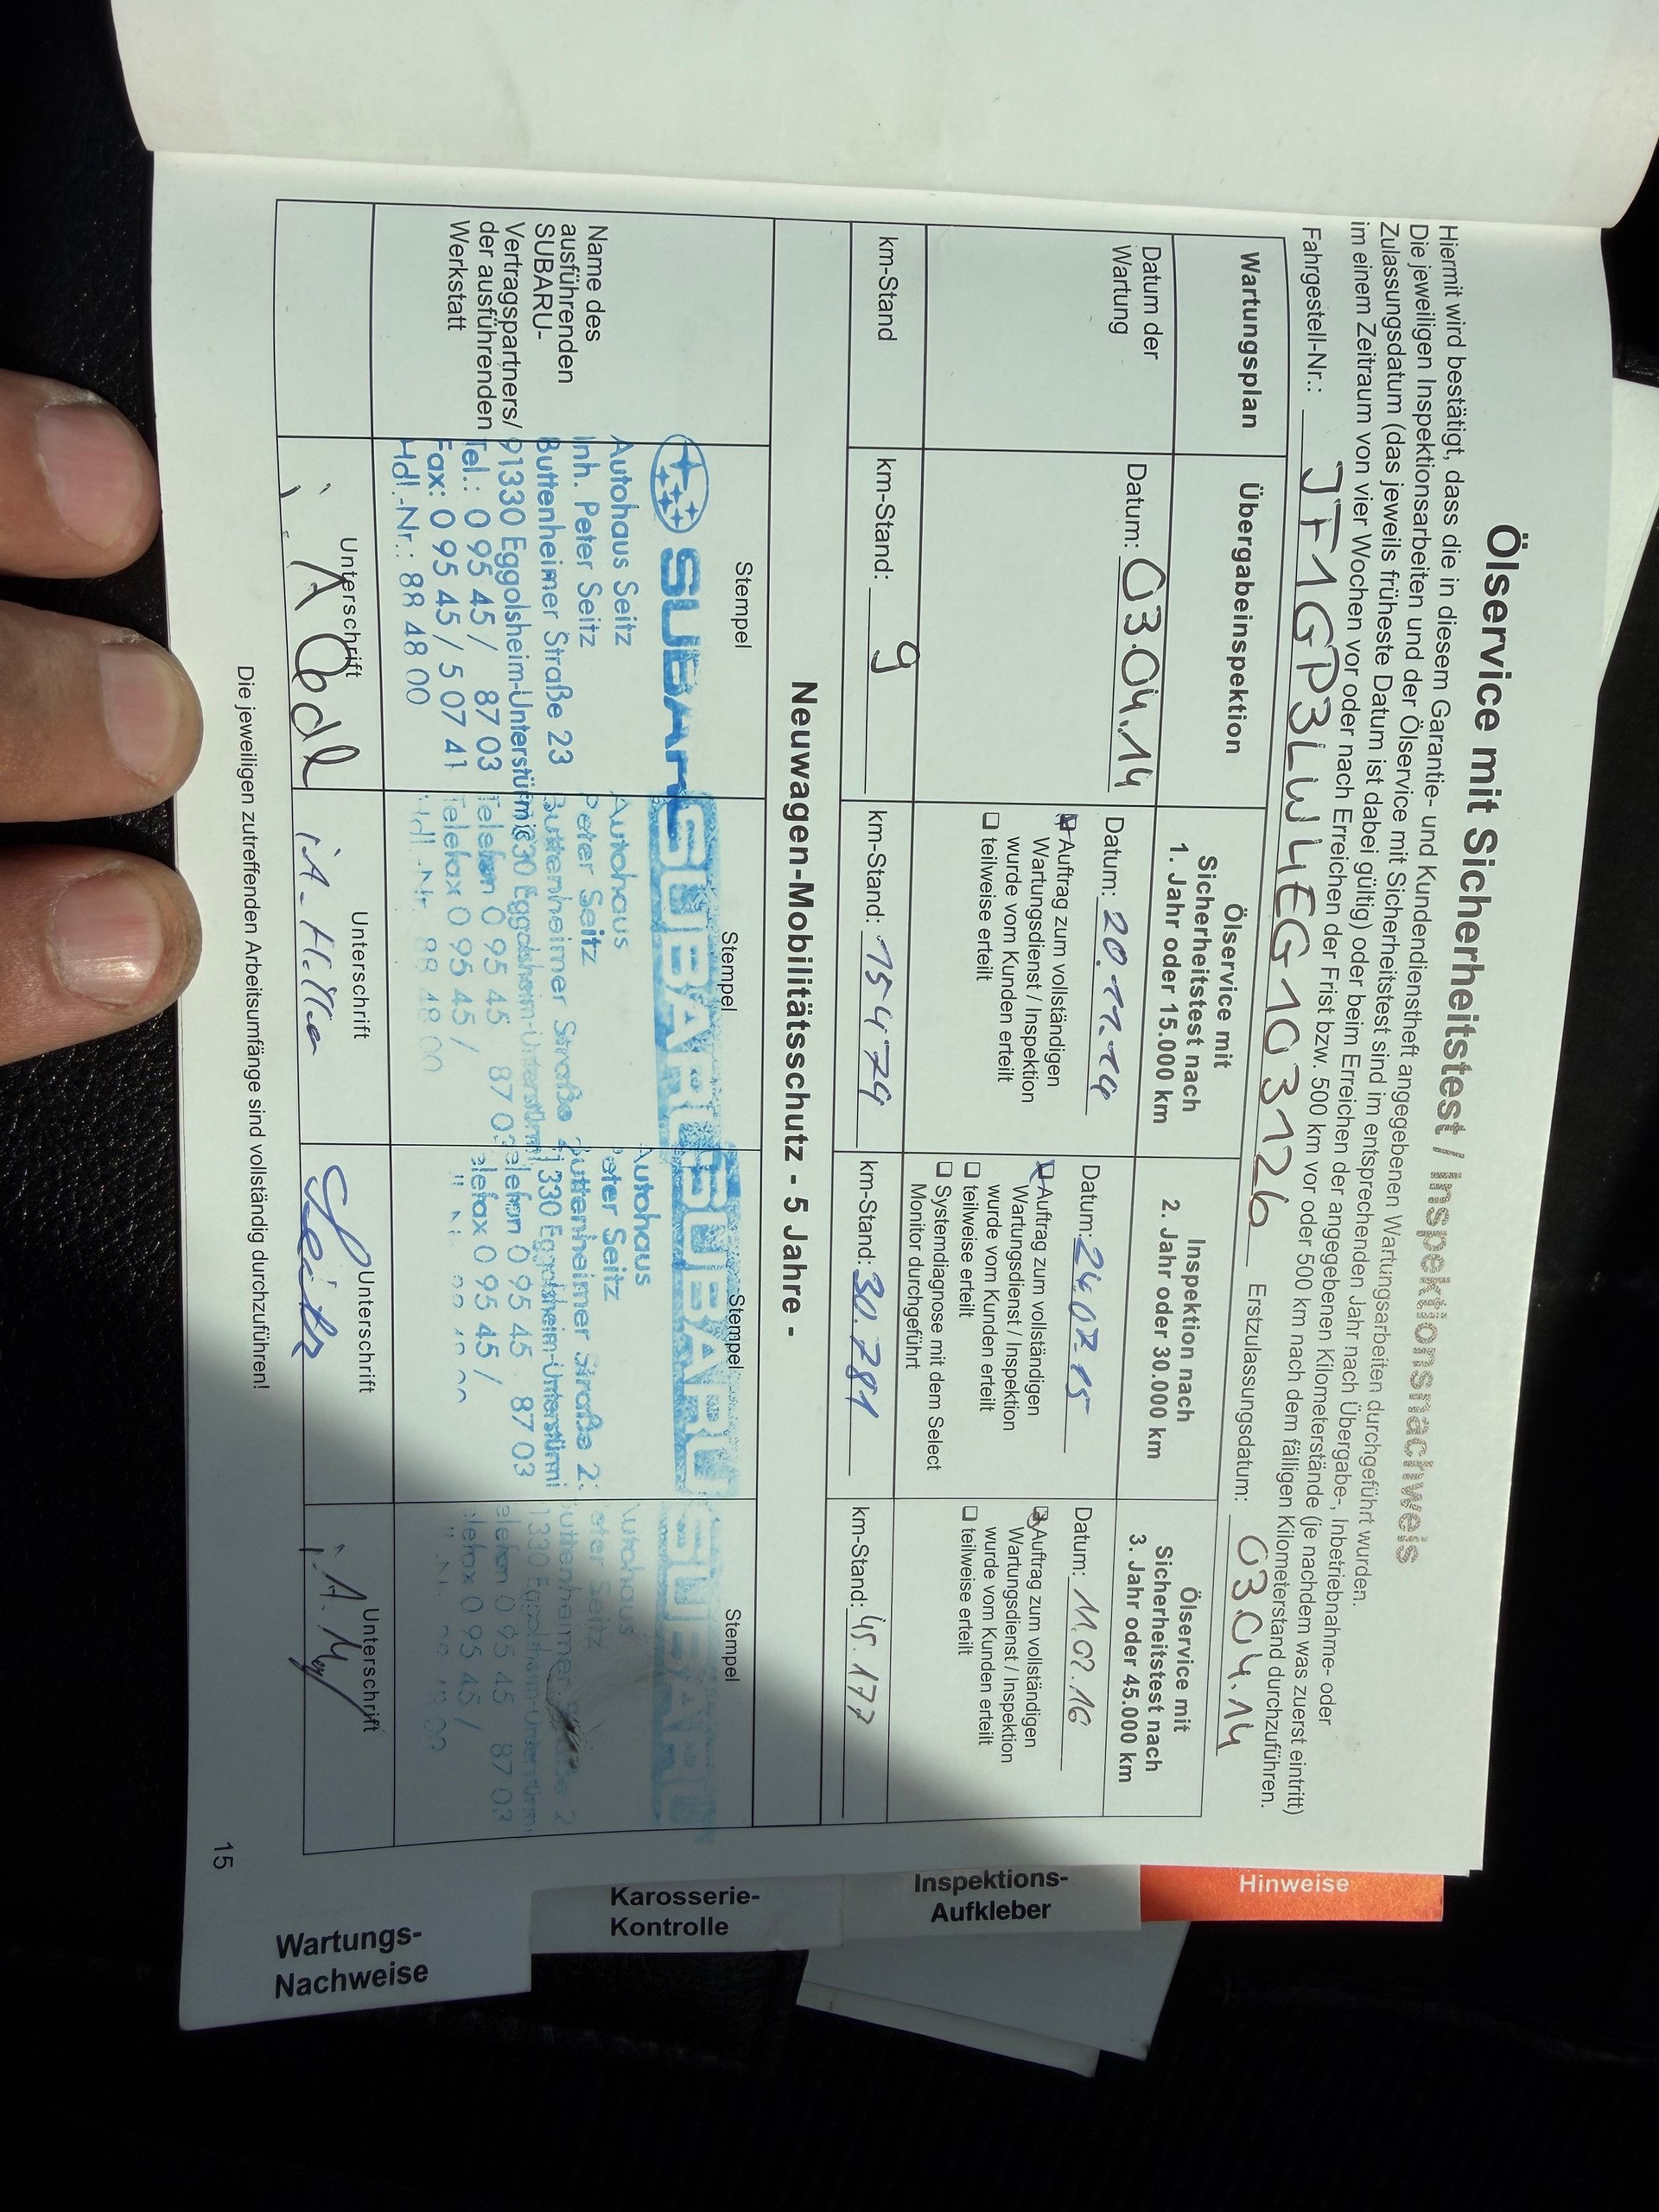 Ölservice mit Sicherheitstest / Inspektionsnachweis
Hiermit wird bestätigt, dass die in diesem Garantie- und Kundendienstheft angegebenen Wartungsarbeiten durchgeführt wurden.
Die jeweiligen Inspektionsarbeiten und der Ölservice mit Sicherheitstest sind im entsprechenden Jahr nach Übergabe-, Inbetriebnahme- oder
Zulassungsdatum (das jeweils früheste Datum ist dabei gültig) oder beim Erreichen der angegebenen Kilometerstände (je nachdem was zuerst eintritt)
im einem Zeitraum von vier Wochen vor oder nach Erreichen der Frist bzw. 500 km vor oder 500 km nach dem fälligen Kilometerstand durchzuführen.
Fahrgestell-Nr.: JF1GP3LW4EG103126 Erstzulassungsdatum: 03.04.14
Wartungsplan
Übergabeinspektion
Ölservice mit
Sicherheitstest nach
1. Jahr oder 15.000 km
Inspektion nach
2. Jahr oder 30.000 km
Ölservice mit
Sicherheitstest nach
3. Jahr oder 45.000 km
Datum der
Wartung
Datum: 03.04.14
Datum: 20.11.14
Auftrag zum vollständigen
Wartungsdienst / Inspektion
wurde vom Kunden erteilt
teilweise erteilt
Datum: 24.07.15
Auftrag zum vollständigen
Wartungsdienst / Inspektion
wurde vom Kunden erteilt
teilweise erteilt
Systemdiagnose mit dem Select
Monitor durchgeführt
Datum: 11.07.16
Auftrag zum vollständigen
Wartungsdienst / Inspektion
wurde vom Kunden erteilt
teilweise erteilt
km-Stand
km-Stand: 9
km-Stand: 15479
km-Stand: 30.781
km-Stand: 45.177
Neuwagen-Mobilitätsschutz - 5 Jahre -
Name des
ausführenden
SUBARU-
Vertragspartners/
der ausführenden
Werkstatt
Stempel
SUBARU
Autohaus Seitz
Inh. Peter Seitz
Buttenheimer Straße 23
91330 Eggolsheim-Unterstürmig
Tel.: 0 95 45 / 87 03
Fax: 0 95 45 / 5 07 41
Hdl.-Nr.: 88 48 00
Stempel
SUBARU
Autohaus
Peter Seitz
Buttenheimer Straße 2
Eggolsheim-Unterstürmi
Telefon 0 95 45 87 03
Telefax 0 95 45 /
Hdl.-Nr. 88 48 00
Stempel
SUBARU
Autohaus
Peter Seitz
Buttenheimer Straße 2
1330 Eggolsheim-Unterstürmi
elefon 0 95 45 87 03
elefax 0 95 45 /
Stempel
SUBARU
Autohaus
eter Seitz
uttenheimer 2
1330 Eggolsheim-Unterstürmi
elefon 0 95 45 87 03
elefax 0 95 45 /
Unterschrift
Unterschrift
Unterschrift
Seitz
Unterschrift
Die jeweiligen zutreffenden Arbeitsumfänge sind vollständig durchzuführen!
15
Hinweise
Inspektions-
Aufkleber
Karosserie-
Kontrolle
Wartungs-
Nachweise